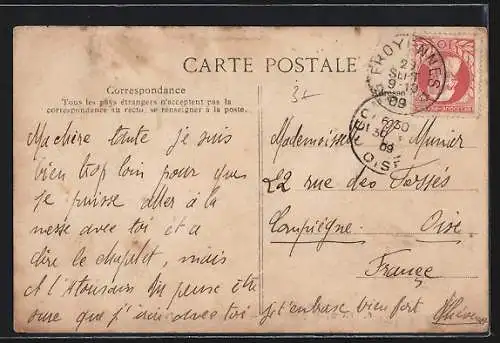 CARTE POSTALE
Correspondance
Tous les pays étrangers n'acceptent pas la
correspondance au recto, se renseigner à la poste.
Ma chère tante je suis
bien trop loin pour que
je puisse aller à la
messe avec toi et a
dire le chapelet, mais
à l'
ouse que j' avec toi - je t'embrasse bien fort
Mademoiselle Munier
22 rue des Fossés
Compiègne. Oise
France
PEROYENNES
29
SEPT
9-10
09
6 30
30
09
OISE
10